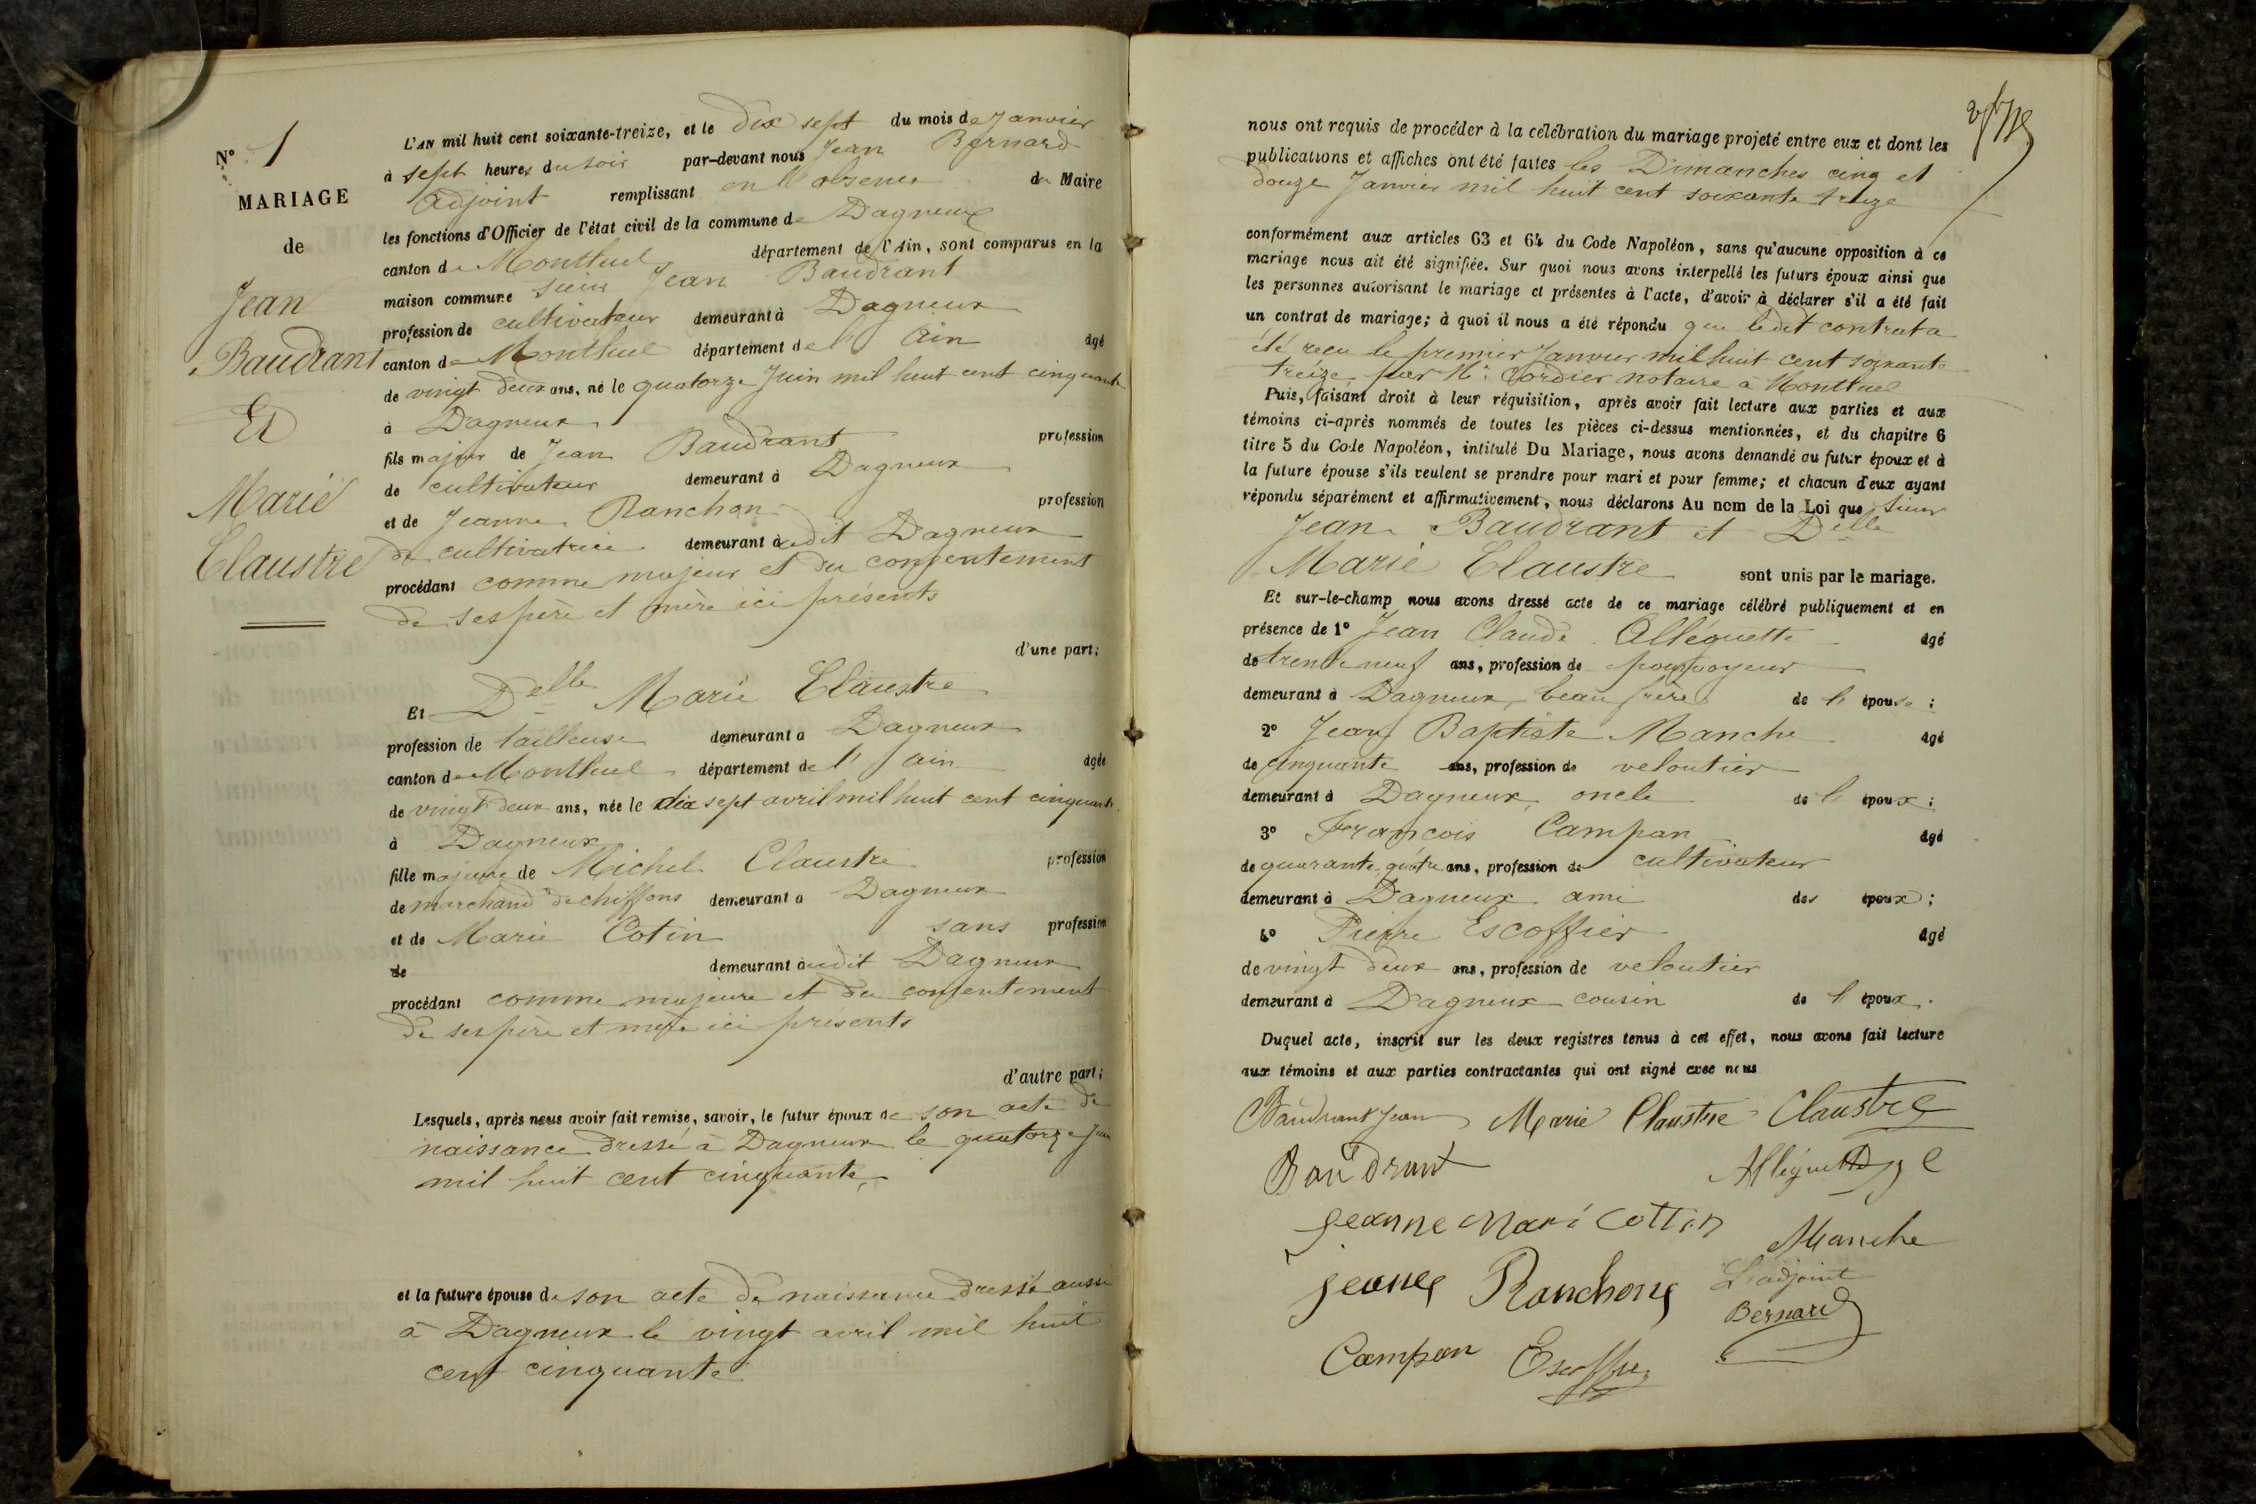 N° 1
MARIAGE
de
Jean
Baudrant
Et
Marie
Claustre
L'AN mil huit cent soixante-treize, et le dix sept du mois de Janvier
à sept heures du soir par-devant nous Jean Bernard
adjoint remplissant en l'absence du Maire
les fonctions d'Officier de l'état civil de la commune de Dagneux
canton de Montluel département de l'Ain, sont comparus en la
maison commune sieur Jean Baudrant
profession de cultivateur demeurant à Dagneux
canton de Montluel département de l' Ain âgé
de vingt deux ans, né le quatorze Juin mil huit cent cinquante
à Dagneux
fils majeur de Jean Baudrant profession
de cultivateur demeurant à Dagneux
et de Jeanne Ranchon profession
de cultivatrice demeurant audit Dagneux
procédant comme majeur et du consentement
de ses père et mère ici présents
d'une part;
Et Delle Marie Claustre
profession de tailleuse demeurant à Dagneux
canton de Montluel département de l' Ain âgée
de vingt deux ans, née le dix sept avril mil huit cent cinquante
à Dagneux
fille majeure de Michel Claustre profession
de marchand de chiffons demeurant à Dagneux
et de Marie Cotin sans profession
de demeurant audit Dagneux
procédant comme majeure et du consentement
de ses père et mère ici présents
d'autre part;
Lesquels, après nous avoir fait remise, savoir, le futur époux de son acte de
naissance dressé à Dagneux le quatorze Juin
mil huit cent cinquante
et la future épouse de son acte de naissance dressé aussi
à Dagneux le vingt avril mil huit
cent cinquante
nous ont requis de procéder à la célébration du mariage projeté entre eux et dont les
publications et affiches ont été faites les Dimanches cinq et
douze Janvier mil huit cent soixante treize
conformément aux articles 63 et 64 du Code Napoléon, sans qu'aucune opposition à ce
mariage nous ait été signifiée. Sur quoi nous avons interpellé les futurs époux ainsi que
les personnes autorisant le mariage et présentes à l'acte, d'avoir à déclarer s'il a été fait
un contrat de mariage; à quoi il nous a été répondu que ledit contrat a
été reçu le premier Janvier mil huit cent soixante
treize par Me Cordier notaire à Montluel
Puis, faisant droit à leur réquisition, après avoir fait lecture aux parties et aux
témoins ci-après nommés de toutes les pièces ci-dessus mentionnées, et du chapitre 6
titre 5 du Code Napoléon, intitulé Du Mariage, nous avons demandé au futur époux et à
la future épouse s'ils veulent se prendre pour mari et pour femme; et chacun d'eux ayant
répondu séparément et affirmativement, nous déclarons Au nom de la Loi que sieur
Jean Baudrant et Delle
Marie Claustre sont unis par le mariage.
Et sur-le-champ nous avons dressé acte de ce mariage célébré publiquement et en
présence de 1° Jean Claude Alléguette âgé
de trente neuf ans, profession de pourvoyeur
demeurant à Dagneux, beau frère de l' épouse;
2° Jean Baptiste Manche âgé
de cinquante ans, profession de veloutier
demeurant à Dagneux, oncle de l' époux;
3° François Campan âgé
de quarante quatre ans, profession de cultivateur
demeurant à Dagneux ami des époux;
4° Pierre Escoffier âgé
de vingt deux ans, profession de veloutier
demeurant à Dagneux cousin de l' époux.
Duquel acte, inscrit sur les deux registres tenus à cet effet, nous avons fait lecture
aux témoins et aux parties contractantes qui ont signé avec nous
Baudrant Jean Marie Claustre Claustre
Baudrant
jeanne mari cottin Manche
jeanne Ranchong L'adjoint
Bernard
Campan